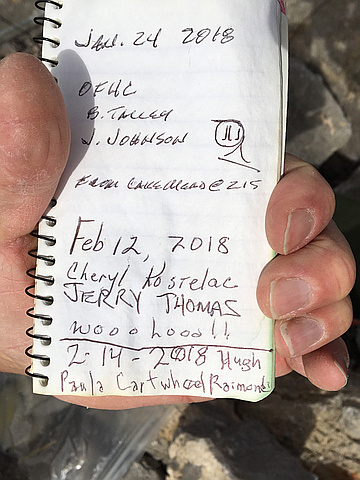 Jan. 24 2018
OFHC
B. Talley
J. Johnson
JJ
From Lake Mead @ 215
Feb 12, 2018
Cheryl Kostelac
JERRY THOMAS
wooohooo!!
2-14-2018 Hugh
Paula Cartwheel Raimondi